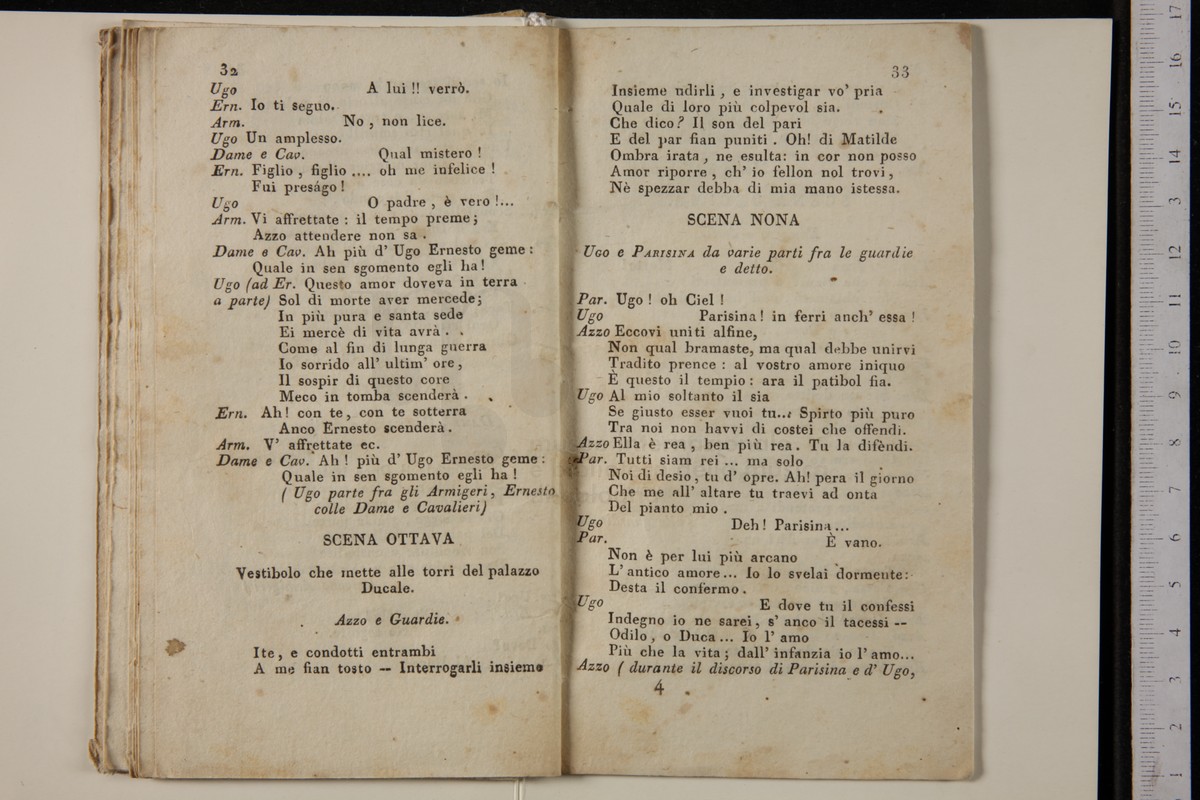 32
Ugo A lui !! verrò.
Ern. Io ti seguo.
Arm. No , non lice.
Ugo Un amplesso.
Dame e Cav. Qual mistero !
Ern. Figlio , figlio .... oh me infelice !
Fui preságo !
Ugo O padre , è vero !...
Arm. Vi affrettate : il tempo preme ;
Azzo attendere non sa .
Dame e Cav. Ah più d' Ugo Ernesto geme :
Quale in sen sgomento egli ha !
Ugo (ad Er. Questo amor doveva in terra
a parte) Sol di morte aver mercede ;
In più pura e santa sede
Ei mercè di vita avrà .
Come al fin di lunga guerra
Io sorrido all' ultim' ore ,
Il sospir di questo core
Meco in tomba scenderà .
Ern. Ah ! con te , con te sotterra
Anco Ernesto scenderà .
Arm. V' affrettate ec.
Dame e Cav. Ah ! più d' Ugo Ernesto geme :
Quale in sen sgomento egli ha !
( Ugo parte fra gli Armigeri , Ernesto
colle Dame e Cavalieri)
SCENA OTTAVA
Vestibolo che mette alle torri del palazzo
Ducale.
Azzo e Guardie.
Ite , e condotti entrambi
A me fian tosto — Interrogarli insieme
33
Insieme udirli , e investigar vo' pria
Quale di loro più colpevol sia.
Che dico ? Il son del pari
E del par fian puniti . Oh! di Matilde
Ombra irata , ne esulta: in cor non posso
Amor riporre , ch' io fellon nol trovi ,
Nè spezzar debba di mia mano istessa.
SCENA NONA
UGO e PARISINA da varie parti fra le guardie
e detto.
Par. Ugo ! oh Ciel !
Ugo Parisina ! in ferri anch' essa !
Azzo Eccovi uniti alfine,
Non qual bramaste, ma qual debbe unirvi
Tradito prence : al vostro amore iniquo
È questo il tempio : ara il patibol fia.
Ugo Al mio soltanto il sia
Se giusto esser vuoi tu... Spirto più puro
Tra noi non havvi di costei che offendi.
Azzo Ella è rea , ben più rea. Tu la difèndi.
Par. Tutti siam rei ... ma solo
Noi di desio , tu d' opre. Ah! pera il giorno
Che me all' altare tu traevi ad onta
Del pianto mio .
Ugo Deh ! Parisina ...
Par. È vano.
Non è per lui più arcano
L' antico amore... Io lo svelai dormente:
Desta il confermo .
Ugo E dove tu il confessi
Indegno io ne sarei , s' anco il tacessi --
Odilo , o Duca ... Io l' amo
Più che la vita ; dall' infanzia io l' amo...
Azzo ( durante il discorso di Parisina e d' Ugo,
4